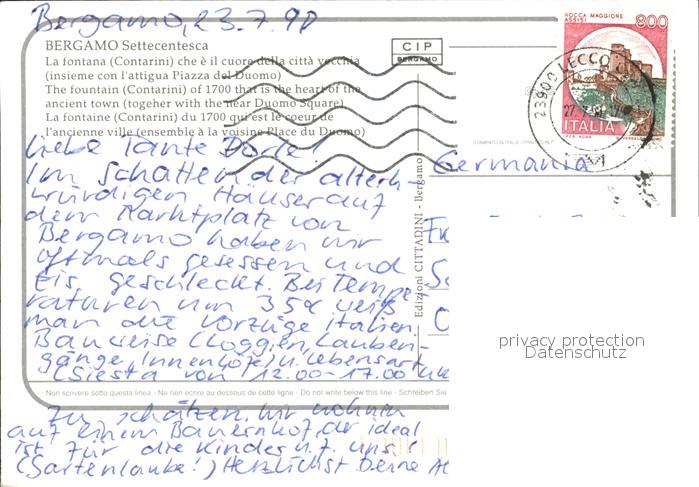 Bergamo, 23.7.90
BERGAMO Settecentesca
La fontana (Contarini) che è il cuore della città vecchia
(insieme con l'attigua Piazza del Duomo)
The fountain (Contarini) of 1700 that is the heart of the
ancient town (togeher with the near Duomo Square)
La fontaine (Contarini) du 1700 qui est le coeur de
l'ancienne ville (ensemble à la voisine Place du Duomo)
CIP
BERGAMO
ROCCA MAGGIORE
ASSISI
800
ITALIA
23900 LECCO
Liebe Tante Dorle!
Im Schatten der alterh-
würdigen Häuser auf
dem Marktplatz von
Bergamo haben wir
oftmals gesessen und
Eis geschleckt. Bei Tempe-
raturen um 35° weiß
man die Vorzüge italien.
Bauweise (Loggien, Lauben-
gänge, Innenhöfe) u. Lebensart
(Siesta von 12.00-17.00
Edizioni CITTADINI - Bergamo
Germania
Non scrivere sotto questa linea - Ne rien écrire au dessous de cette ligne - Do not write below this line - Schreiben Sie
zu schätzen. Wir wohnen
auf einem Bauernhof, der ideal
ist für die Kinder u. f. uns
(Gartenlaube!) Herzlichst Deine
privacy protection
Datenschutz